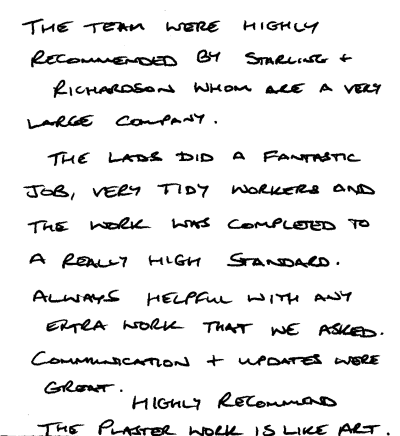 THE TEAM WERE HIGHLY
RECOMMENDED BY STARLING +
RICHARDSON WHOM ARE A VERY
LARGE COMPANY.
THE LADS DID A FANTASTIC
JOB, VERY TIDY WORKERS AND
THE WORK WAS COMPLETED TO
A REALLY HIGH STANDARD.
ALWAYS HELPFUL WITH ANY
EXTRA WORK THAT WE ASKED.
COMMUNICATION + UPDATES WERE
GREAT.
HIGHLY RECOMMEND
THE PLASTER WORK IS LIKE ART.